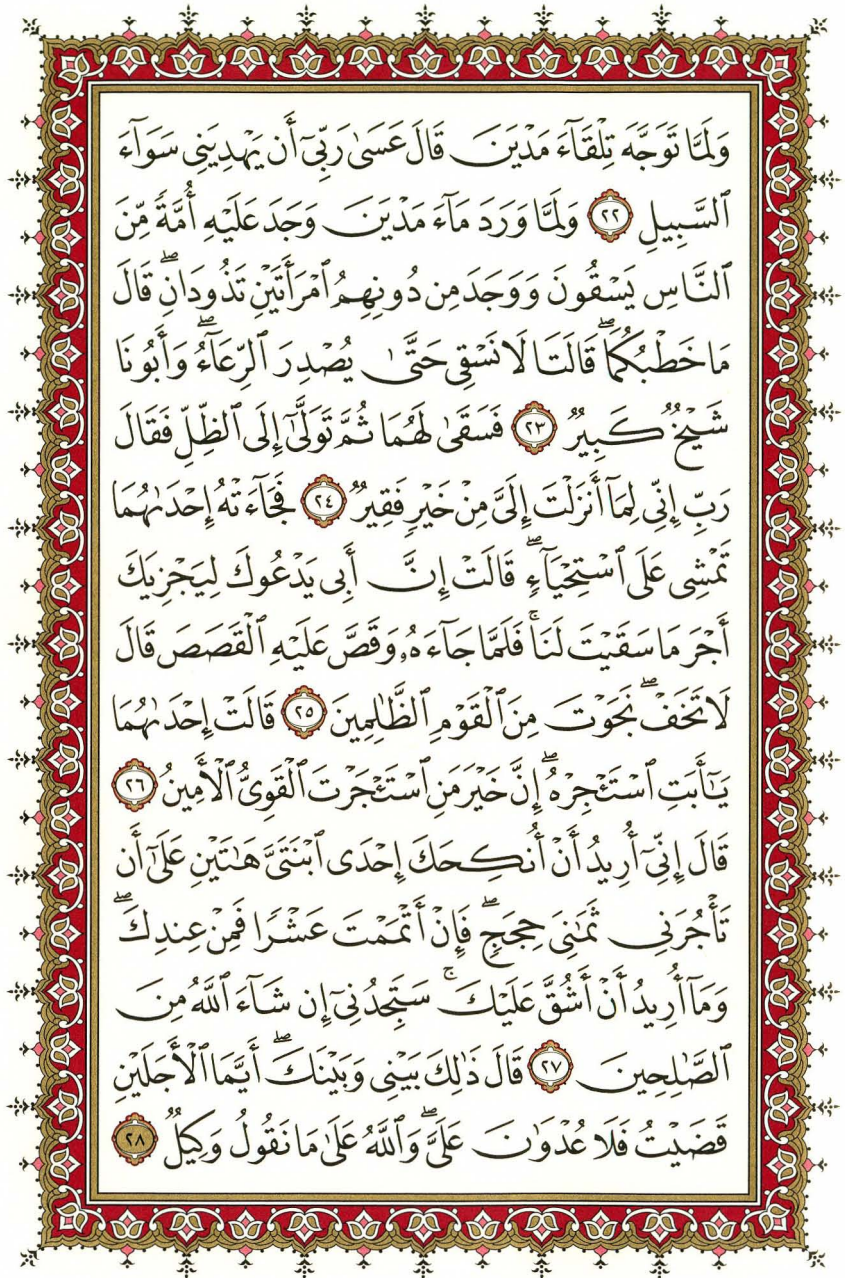 وَلَمَّا تَوَجَّهَ تِلْقَآءَ مَدْيَنَ قَالَ عَسَىٰ رَبِّىٓ أَن يَهْدِيَنِى سَوَآءَ
ٱلسَّبِيلِ ٢٢ وَلَمَّا وَرَدَ مَآءَ مَدْيَنَ وَجَدَ عَلَيْهِ أُمَّةً مِّنَ
ٱلنَّاسِ يَسْقُونَ وَوَجَدَ مِن دُونِهِمُ ٱمْرَأَتَيْنِ تَذُودَانِۖ قَالَ
مَا خَطْبُكُمَاۖ قَالَتَا لَا نَسْقِى حَتَّىٰ يُصْدِرَ ٱلرِّعَآءُۖ وَأَبُونَا
شَيْخٌ كَبِيرٌ ٢٣ فَسَقَىٰ لَهُمَا ثُمَّ تَوَلَّىٰٓ إِلَى ٱلظِّلِّ فَقَالَ
رَبِّ إِنِّى لِمَآ أَنزَلْتَ إِلَىَّ مِنْ خَيْرٍ فَقِيرٌ ٢٤ فَجَآءَتْهُ إِحْدَىٰهُمَا
تَمْشِى عَلَى ٱسْتِحْيَآءٍۖ قَالَتْ إِنَّ أَبِى يَدْعُوكَ لِيَجْزِيَكَ
أَجْرَ مَا سَقَيْتَ لَنَاۚ فَلَمَّا جَآءَهُۥ وَقَصَّ عَلَيْهِ ٱلْقَصَصَ قَالَ
لَا تَخَفْۖ نَجَوْتَ مِنَ ٱلْقَوْمِ ٱلظَّٰلِمِينَ ٢٥ قَالَتْ إِحْدَىٰهُمَا
يَٰٓأَبَتِ ٱسْتَـْٔجِرْهُۖ إِنَّ خَيْرَ مَنِ ٱسْتَـْٔجَرْتَ ٱلْقَوِىُّ ٱلْأَمِينُ ٢٦
قَالَ إِنِّىٓ أُرِيدُ أَنْ أُنكِحَكَ إِحْدَى ٱبْنَتَىَّ هَٰتَيْنِ عَلَىٰٓ أَن
تَأْجُرَنِى ثَمَٰنِىَ حِجَجٍۖ فَإِنْ أَتْمَمْتَ عَشْرًا فَمِنْ عِندِكَۖ
وَمَآ أُرِيدُ أَنْ أَشُقَّ عَلَيْكَۚ سَتَجِدُنِىٓ إِن شَآءَ ٱللَّهُ مِنَ
ٱلصَّٰلِحِينَ ٢٧ قَالَ ذَٰلِكَ بَيْنِى وَبَيْنَكَۖ أَيَّمَا ٱلْأَجَلَيْنِ
قَضَيْتُ فَلَا عُدْوَٰنَ عَلَىَّۖ وَٱللَّهُ عَلَىٰ مَا نَقُولُ وَكِيلٌ ٢٨